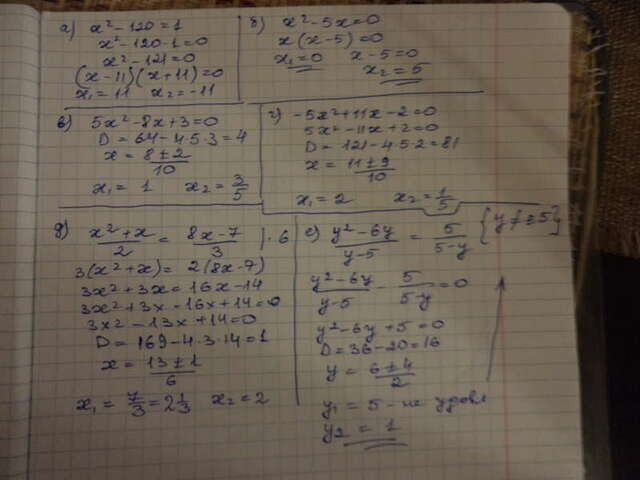 а) x² - 120 = 1
x² - 120 - 1 = 0
x² - 121 = 0
(x - 11)(x + 11) = 0
x₁ = 11 x₂ = -11
б) x² - 5x = 0
x(x - 5) = 0
x₁ = 0 x - 5 = 0
x₂ = 5
в) 5x² - 8x + 3 = 0
D = 64 - 4·5·3 = 4
x = (8 ± 2)/10
x₁ = 1 x₂ = 3/5
г) -5x² + 11x - 2 = 0
5x² - 11x + 2 = 0
D = 121 - 4·5·2 = 81
x = (11 ± 9)/10
x₁ = 2 x₂ = 1/5
д) (x² + x)/2 = (8x - 7)/3 |·6
3(x² + x) = 2(8x - 7)
3x² + 3x = 16x - 14
3x² + 3x - 16x + 14 = 0
3x² - 13x + 14 = 0
D = 169 - 4·3·14 = 1
x = (13 ± 1)/6
x₁ = 7/3 = 2 1/3 x₂ = 2
е) (y² - 6y)/(y - 5) = 5/(5 - y)
(y² - 6y)/(y - 5) - 5/(5 - y) = 0
y² - 6y + 5 = 0
D = 36 - 20 = 16
y = (6 ± 4)/2
y₁ = 5 - не удовл
y₂ = 1